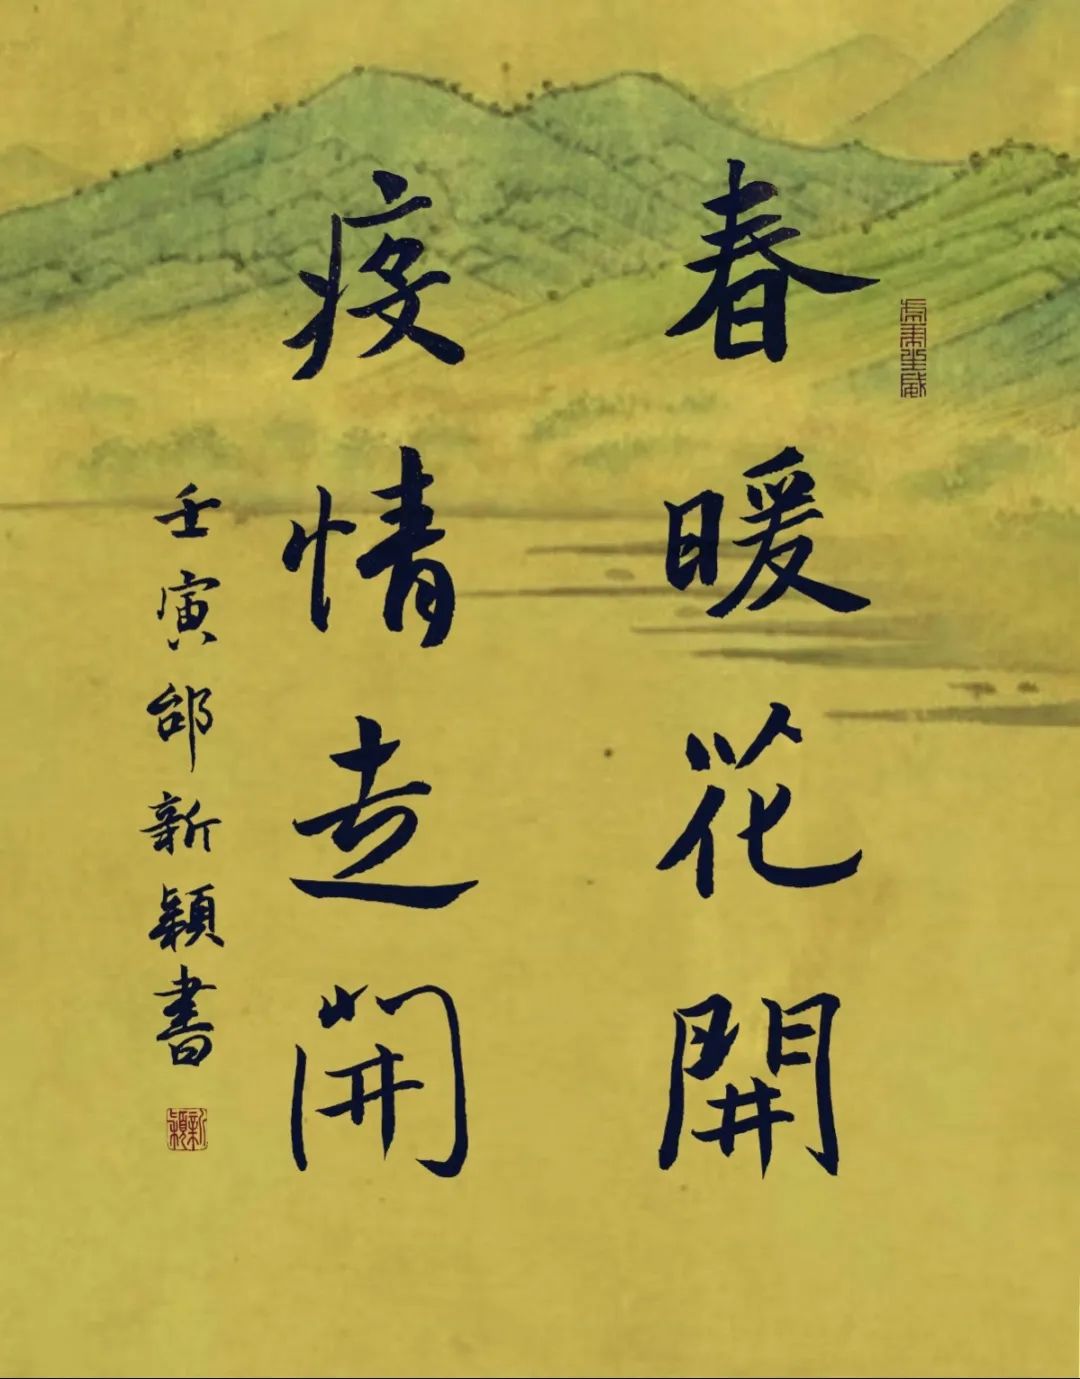 春暖花開
疫情走開
壬寅邰新穎書
新穎